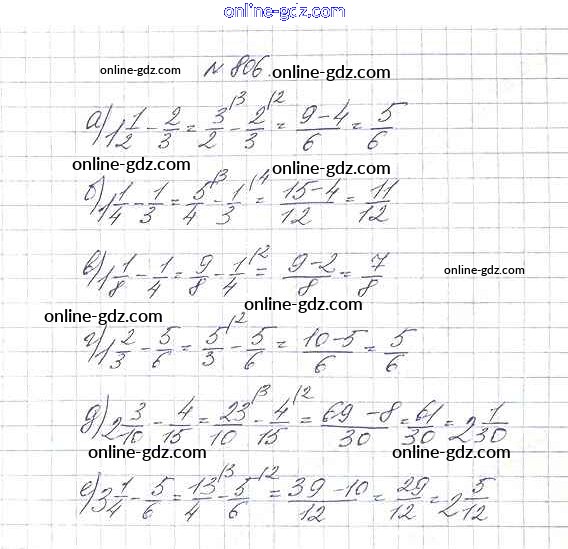 online-gdz.com
online-gdz.com № 806. online-gdz.com
а) 1 1/2 - 2/3 = 3/2 |3 - 2/3 |2 = (9-4)/6 = 5/6
online-gdz.com online-gdz.com
б) 1 1/4 - 1/3 = 5/4 |3 - 1/3 |4 = (15-4)/12 = 11/12
в) 1 1/8 - 1/4 = 9/8 - 1/4 |2 = (9-2)/8 = 7/8 online-gdz.com
online-gdz.com online-gdz.com
г) 1 2/3 - 5/6 = 5/3 |2 - 5/6 = (10-5)/6 = 5/6
online-gdz.com online-gdz.com
д) 2 3/10 - 4/15 = 23/10 |3 - 4/15 |2 = (69-8)/30 = 61/30 = 2 1/30
online-gdz.com online-gdz.com
е) 3 1/4 - 5/6 = 13/4 |3 - 5/6 |2 = (39-10)/12 = 29/12 = 2 5/12
online-gdz.com online-gdz.com